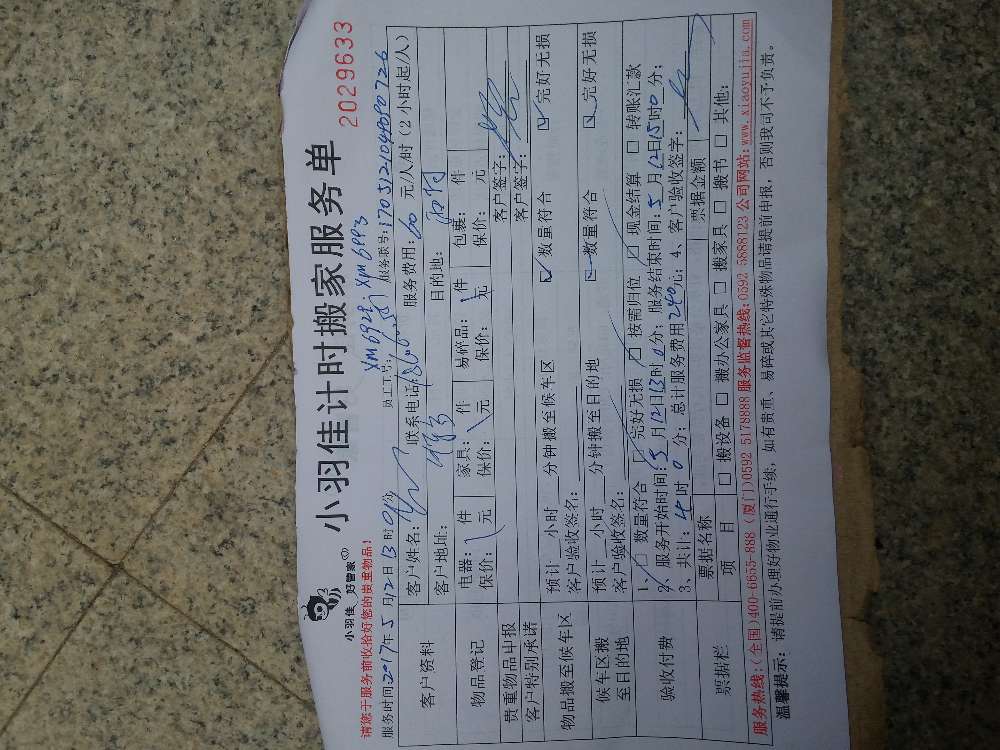 小羽佳 好管家
小羽佳计时搬家服务单
2029633
请您于服务前收拾好您的贵重物品!
服务时间:2017年5月12日13时0分 员工工号: xm6929. xpm6993 服务联号:170512104080726
客户资料
客户姓名: 联系电话: 服务费用:60元/人/时(2小时起/人)
客户地址: 目的地:
物品登记
电器: 件 家具: 件 易碎品: 件 包裹: 件
保价: 元 保价: 元 保价: 元 保价: 元
贵重物品申报 客户签字:
客户特别承诺 客户签字:
物品搬至候车区
预计 小时 分钟搬至候车区 数量符合 完好无损
客户验收签名:
候车区搬至目的地
预计 小时 分钟搬至目的地 数量符合 完好无损
客户验收签名:
验收付费
1、 数量符合 完好无损 按需归位 现金结算 转账汇款
2、服务开始时间:5月12日13时0分; 服务结束时间:5月12日15时0分;
3、共计:4时0分; 总计服务费用240元; 4、客户验收签字:
票据栏
票据名称 票据金额
项目 搬设备 搬办公家具 搬家具 搬书 其他:
服务热线:(全国)400-6655-888 (厦门)0592 5178888 服务监督热线:0592 5888123 公司网站:www.xiaoyujia.com
温馨提示: 请提前办理好物业通行手续,如有贵重、易碎或其它特殊物品请提前申报,否则我司不予负责。